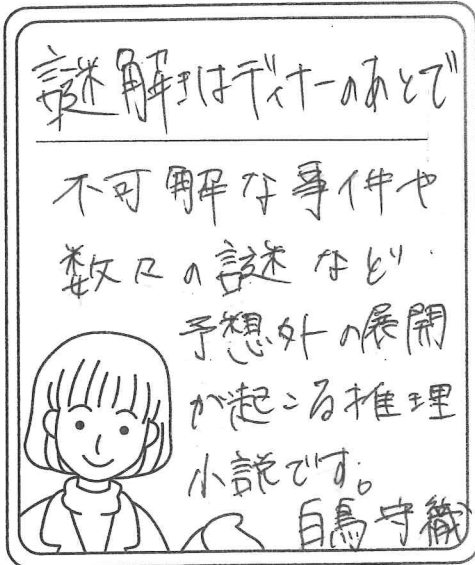 謎解きはディナーのあとで
不可解な事件や
数々の謎など
予想外の展開
が起こる推理
小説です。
白鳥守織